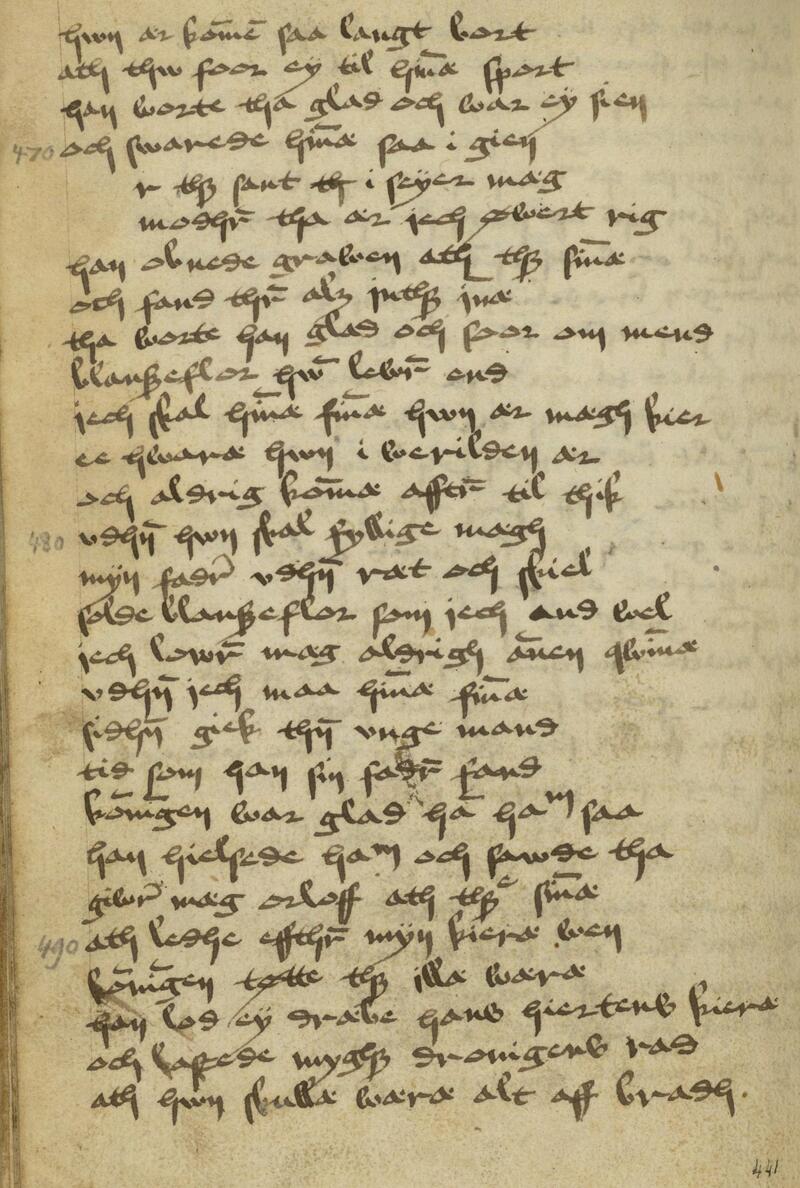 hwn ær kōmē saa langt bort
ath thw foor ey til hīnæ sport
han worte tha glad och war ey sien
470 och swarede hīnæ saa i gien
r thꝫ sant th i seyer mæg
modhr̄ tha ær jech øwert rig
han obnede grawen ath thꝫ sīnæ
och fand thr̄ alꝫ inthꝫ īnæ
tha worte han glad och foor om mend
blanszeflor hw̄ lewr̄ end
jech skal hīnæ fīnæ hwn ær mægh kier
ee hwaræ hwn i werilden ær
och aldrig kōmæ afftr̄ til thik
480 vdhn̄ hwn skal fyllige mægh
myn fadr̄ vdhn̄ ræt och skiel
solde blanszeflor som jech and wel
jech lowr̄ mæg aldrigh āнen qwīnæ
vdhn̄ jech maa hīnæ fīnæ
sidhn̄ giek thn̄ vnge mand
tid som han sin fadr̄ fand
kōnīgen war glad hā haᵐ saa
han hielsede haᵐ och sawde tha
giwr̄ mæg orloff ath thꝫᵉ sīnæ
490 ath ledhe effthr̄ myn kieræ wen
kōnīgen tøtte thꝫ illæ wæræ
han lod ey dræbe hans hiertens kieræ
och lastede myghꝫ dronigens rad
ath hwn skullæ wæræ alt aff bradh.
441